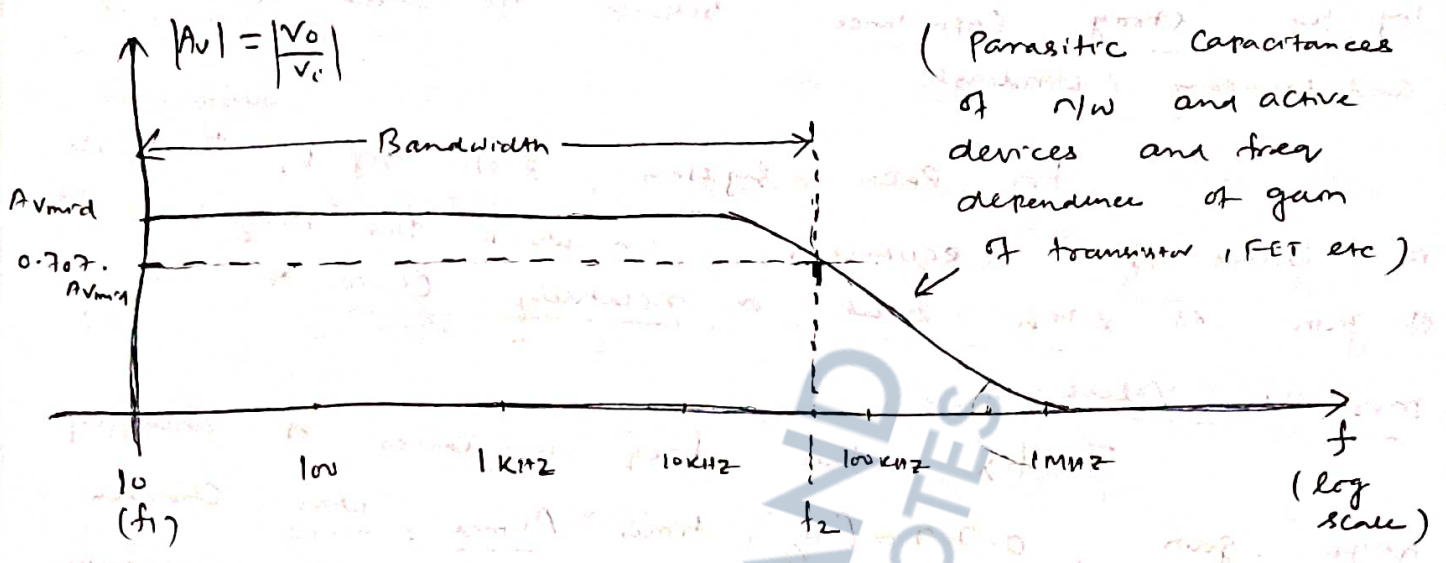 |Av| = |Vo/Vi|
( Parasitic Capacitances
of n/w and active
devices and freq
dependence of gain
of transistor, FET etc )
Bandwidth
Avmid
0.707.
Avmid
10
100
1 KHZ
10KHZ
100 KHZ
1 MHZ
f
(f1)
f2
( log
scale )
AND
OTES